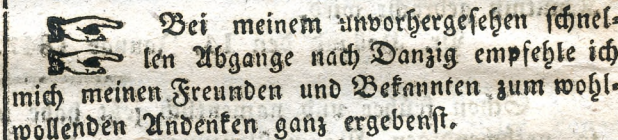 ☞ Bei meinem unvorhergesehen schnel-
☞ len Abgange nach Danzig empfehle ich
mich meinen Freunden und Bekannten zum wohl-
wollenden Andenken ganz ergebenst.